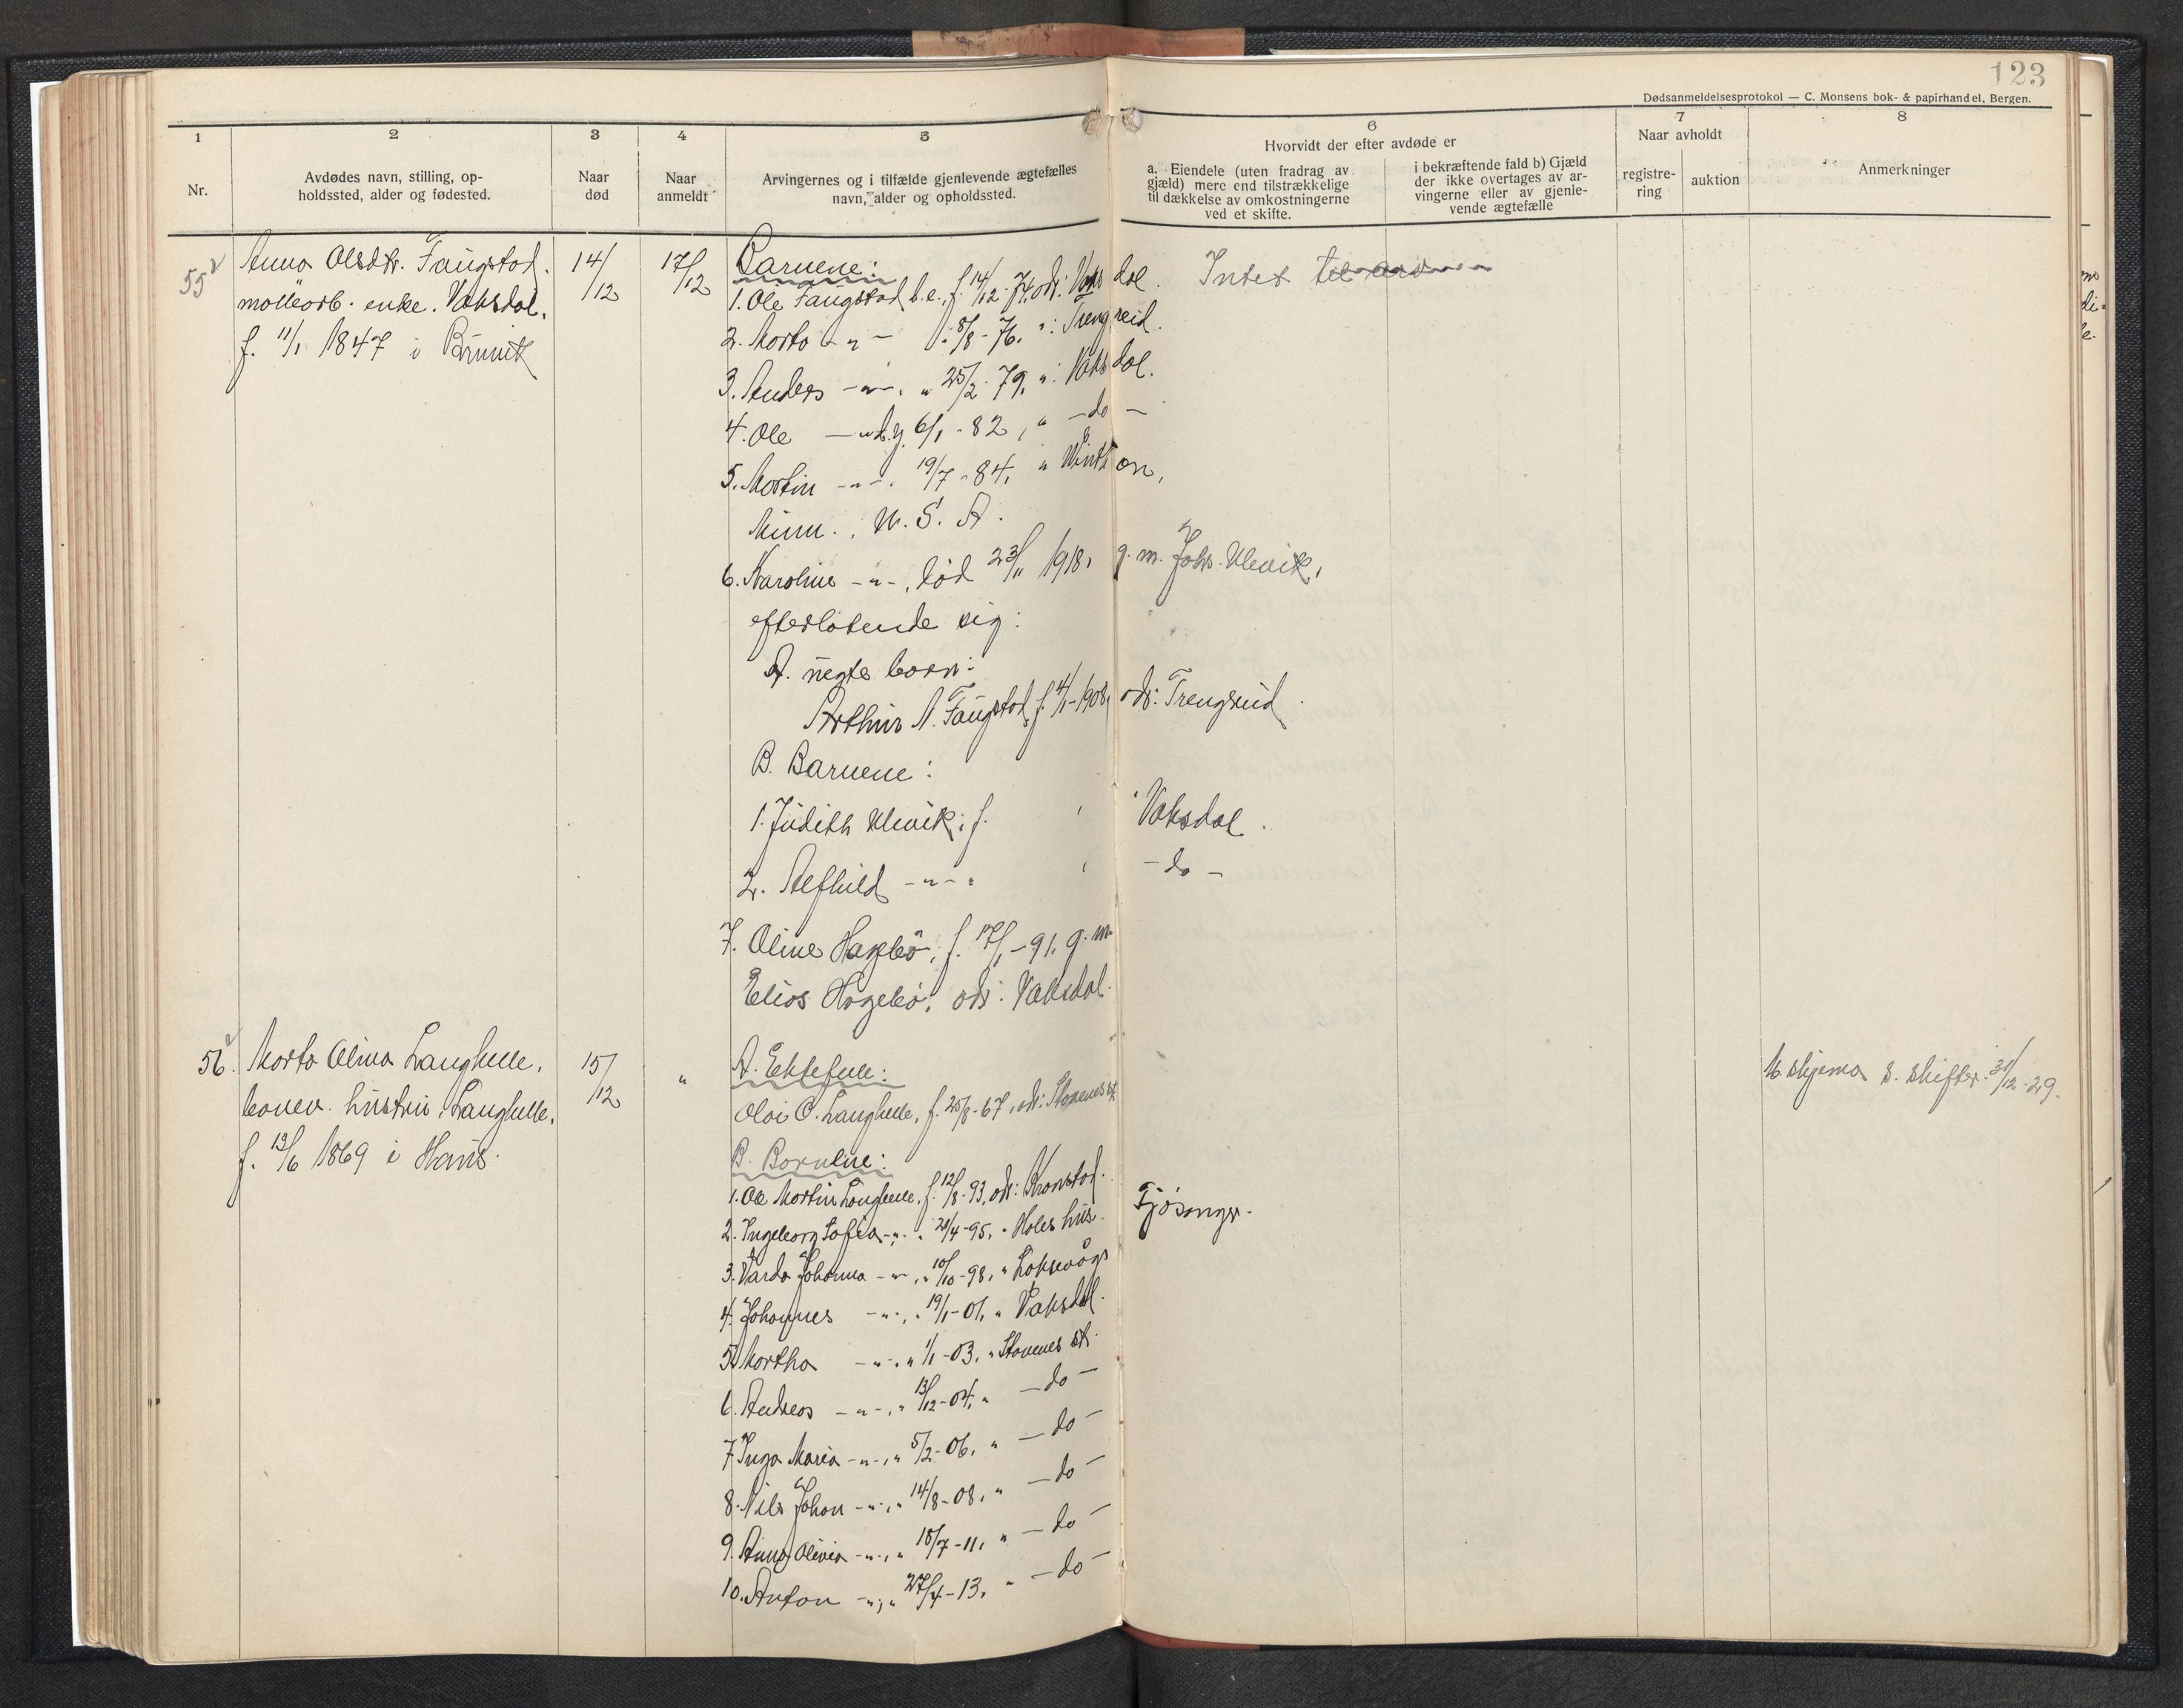 123
Dødsanmeldelsesprotokol — C. Monsens bok- & papirhandel, Bergen.
1
2
3
4
5
6
7
8
Nr.
Avdødes navn, stilling, op-
holdssted, alder og fødested.
Naar
død
Naar
anmeldt
Arvingernes og i tilfælde gjenlevende ægtefælles
navn, alder og opholdssted.
Hvorvidt der efter avdøde er
a. Eiendele (uten fradrag av
gjæld) mere end tilstrækkelige
til dækkelse av omkostningerne
ved et skifte.
i bekræftende fald b) Gjæld
der ikke overtages av ar-
vingerne eller av gjenle-
vende ægtefælle
Naar avholdt
registre-
ring
auktion
Anmerkninger
55
Anna Olsdtr. Faugstad.
møllearb. enke. Vaksdal.
f. 11/1 1847 i Bruvik
14/12
17/12
Barnene:
1. Ole Faugstad d.e., f. 14/12-74, ods: Vaksdal.
2. Marta -"- ": 8/8-76. ": Trengreid.
3. Anders -"-. " 25/2-79, ": Vaksdal.
4. Ole -"- d.y. 6/1-82, " -do-
5. Martin -"-. 19/7-84, "
Minn., U.S.A.
6. Karoline -"-, død 23/11 1918, g.m. Johs. Ulevik,
efterlatende sig:
A. uegte barn:
Arthur A. Faugstad, f. 4/1-1908, ods: Trengreid.
B. Barnene:
1. Judith Ulevik, f. Vaksdal.
2. Alfhild -"-" -do-
7. Oline Hagebø, f. 17/1-91. g.m.
Elias Hagebø, ods: Vaksdal.
Intet
56.
Marta Olina Langhelle,
hustru, Langhelle,
f. 19/6 1869 i Haus.
15/12
"
A. Ektefelle:
Olai O. Langhelle, f. 25/8-67, ods: Stanes st.
B. Barnene:
1. Ole Martin Langhelle, f. 12/8-93, ods: Kronstad.
2. Ingeborg Sofia -"-. " 20/4-95, " Holes hus. Fjøsanger.
3. Johanna -"-, " 10/10-98, " Laksevåg
4. Johannes -"-, " 19/1-01, " Vaksdal.
5. Martha -"-. " 1/1-03, " Stanes st.
6. Andreas -"-, " 13/12-04, " -do-
7. Inga Maria -"-, " 5/2-06, " -do-
8. Nils Johan -"-, " 14/8-08, " -do-
9. Anna Olivia -"-, " 18/7-11, " -do-
10. Anton -"-, " 27/4-13, " -do-
skjema s. skifter. 31/12-29.